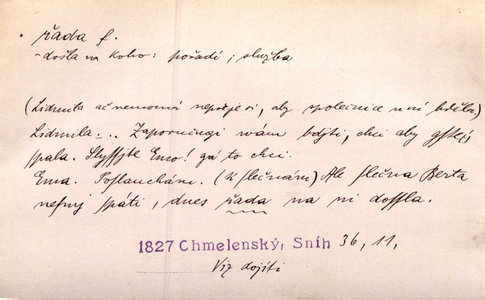 řada f.
- došla na koho: pořadí; služba
(Lidmila ač nemocná nepřeje si, aby společnice u ní bděla)
Lidmila: .. Zapowjdagi wám bdjti, chci aby
spala. Slyssjte Emo! gá to chci.
Ema. Poslauchám. (K slečnám) Ale slečna Berta
nesmj spáti, dnes řada na ni dossla.
1827 Chmelenský, Sníh 36, 11,
Viz dojíti